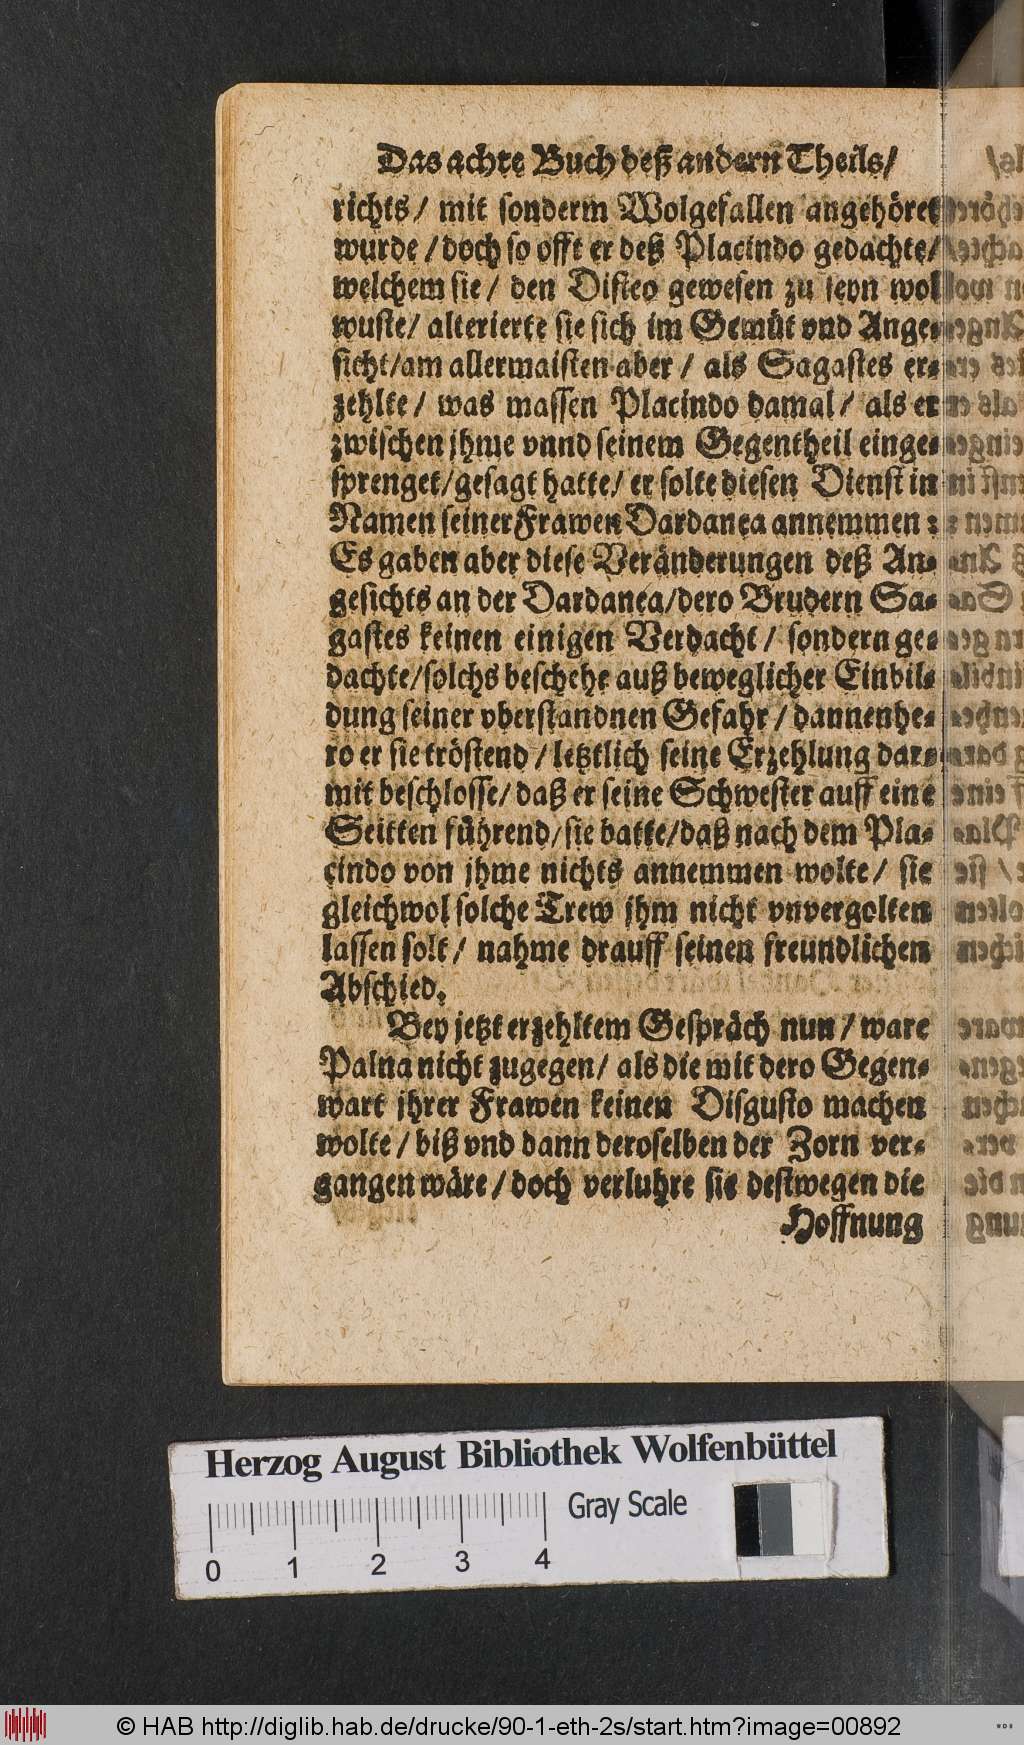 Das achte Buch deß andern Theils/
richts/ mit sonderm Wolgefallen angehöret
wurde / doch so offt er deß Placindo gedachte/
welchem sie / den Disteo gewesen zu seyn wol
wuste/ alterierte sie sich im Gemüt vnd Ange-
sicht/am allermaisten aber / als Sagastes er-
zehlte / was massen Placindo damal / als er
zwischen jhme vnnd seinem Gegentheil einge-
sprenget/gesagt hatte/ er solte diesen Dienst in
Namen seiner Frawen Dardanea annemmen :
Es gaben aber diese Veränderungen deß An-
gesichts an der Dardanea/dero Brudern Sa-
gastes keinen einigen Verdacht / sondern ge-
dachte/solchs beschehe auß beweglicher Einbil-
dung seiner vberstandnen Gefahr / dannenhe-
ro er sie tröstend / letztlich seine Erzehlung dar-
mit beschlosse/ daß er seine Schwester auff eine
Seitten führend/sie batte/daß nach dem Pla-
cindo von jhme nichts annemmen wolte / sie
gleichwol solche Trew jhm nicht vnvergolten
lassen solt / nahme drauff seinen freundlichen
Abschied.
Bey jetzt erzehltem Gespräch nun / ware
Palna nicht zugegen/ als die mit dero Gegen-
wart jhrer Frawen keinen Disgusto machen
wolte / biß vnd dann deroselben der Zorn ver-
gangen wäre / doch verluhre sie destwegen die
Hoffnung
Herzog August Bibliothek Wolfenbüttel
Gray Scale
0 1 2 3 4
© HAB http://diglib.hab.de/drucke/90-1-eth-2s/start.htm?image=00892